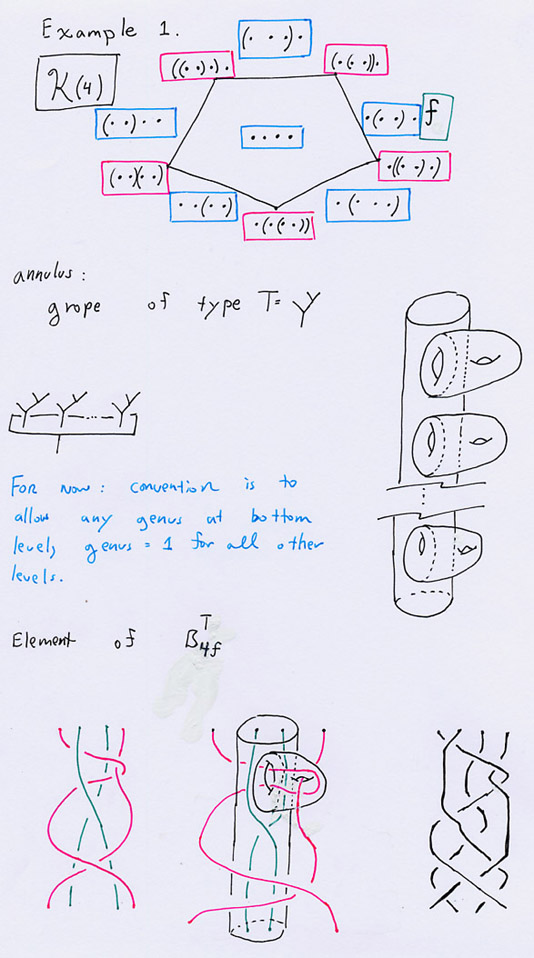 Example 1.
K(4)
(· · ·) ·
((· ·) ·) ·
(· (· ·)) ·
(· ·) · ·
· (· ·) ·
f
· · · ·
(· ·)(· ·)
· ((· ·) ·)
· · (· ·)
· (· · ·)
· (· (· ·))
annulus:
grope of type T = Y
For now: convention is to
allow any genus at bottom
level, genus = 1 for all other
levels.
Element of B_{4f}^T